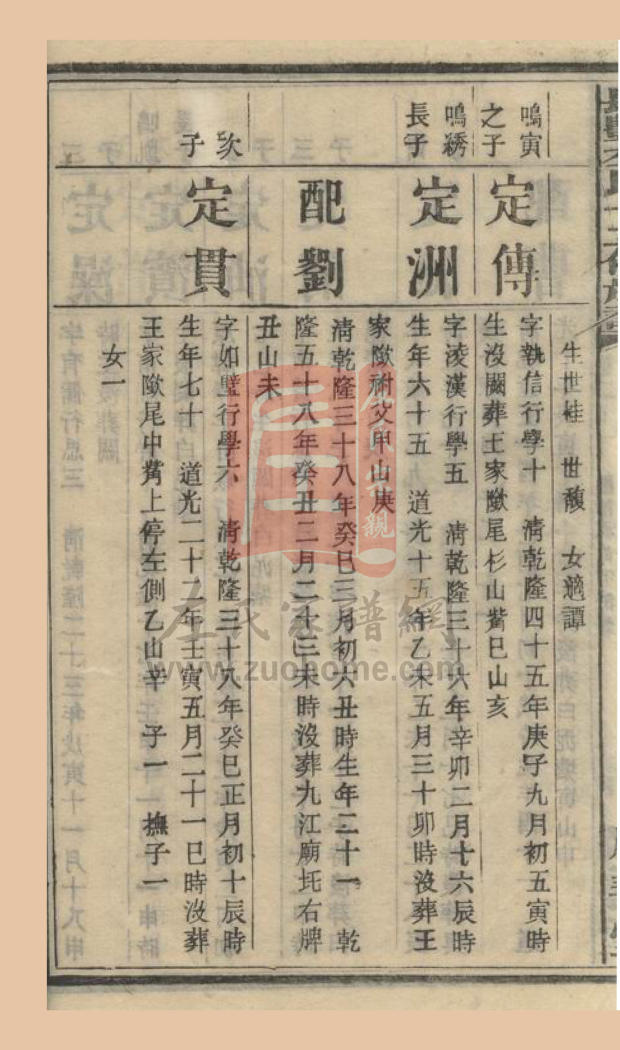 生世桂　世馥　女適譚
鳴寅
之子
定傳
字執信行學十　清乾隆四十五年庚子九月初五寅時
生沒闕葬王家歐尾杉山觜巳山亥
鳴綉
長子
定洲
字淩漢行學五　清乾隆三十六年辛卯二月十六辰時
生年六十五　道光十五年乙未五月三十卯時沒葬王
家歐祔父甲山庚
配劉
清乾隆三十八年癸巳三月初六丑時生年二十一　乾
隆五十八年癸丑二月二十三未時沒葬九江廟圫右牌
丑山未
次
子
定貫
字如璧行學六　清乾隆三十八年癸巳正月初十辰時
生年七十　道光二十二年壬寅五月二十一巳時沒葬
王家歐尾中觜上停左側乙山辛　子一　撫子一
女一
左氏家譜網
www.zuohome.com